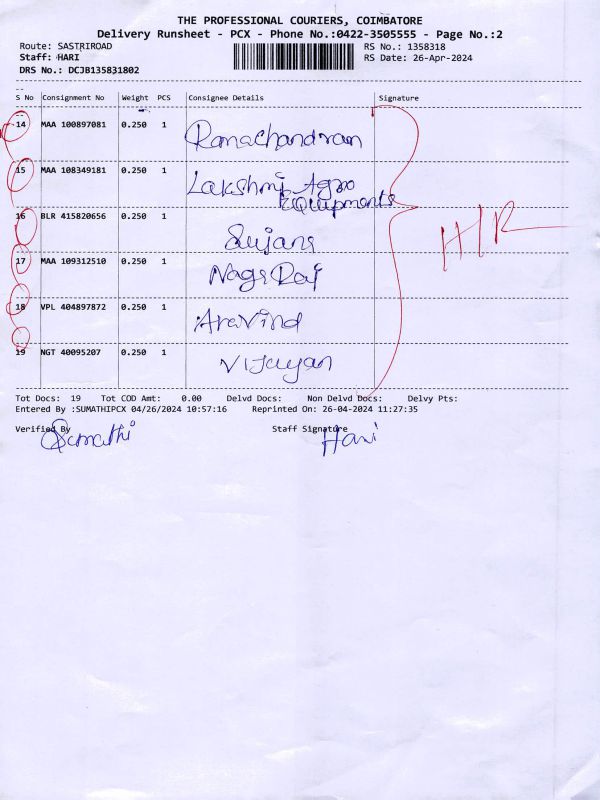 THE PROFESSIONAL COURIERS, COIMBATORE
Delivery Runsheet - PCX - Phone No.:0422-3505555 - Page No.:2
Route: SASTRIROAD RS No.: 1358318
Staff: HARI RS Date: 26-Apr-2024
DRS No.: DCJB135831802
S No Consignment No Weight PCS Consignee Details Signature
14 MAA 100897081 0.250 1 Ramachandran
15 MAA 108349181 0.250 1 Lakshmi Agro
Equipments
16 BLR 415820656 0.250 1 Sujans
17 MAA 109312510 0.250 1 NagsRaj
18 VPL 404897872 0.250 1 Aravind
19 NGT 40095207 0.250 1 Vijayan
Tot Docs: 19 Tot COD Amt: 0.00 Delvd Docs: Non Delvd Docs: Delvy Pts:
Entered By :SUMATHIPCX 04/26/2024 10:57:16 Reprinted On: 26-04-2024 11:27:35
Verified By Staff Signature
Sumathi Hari